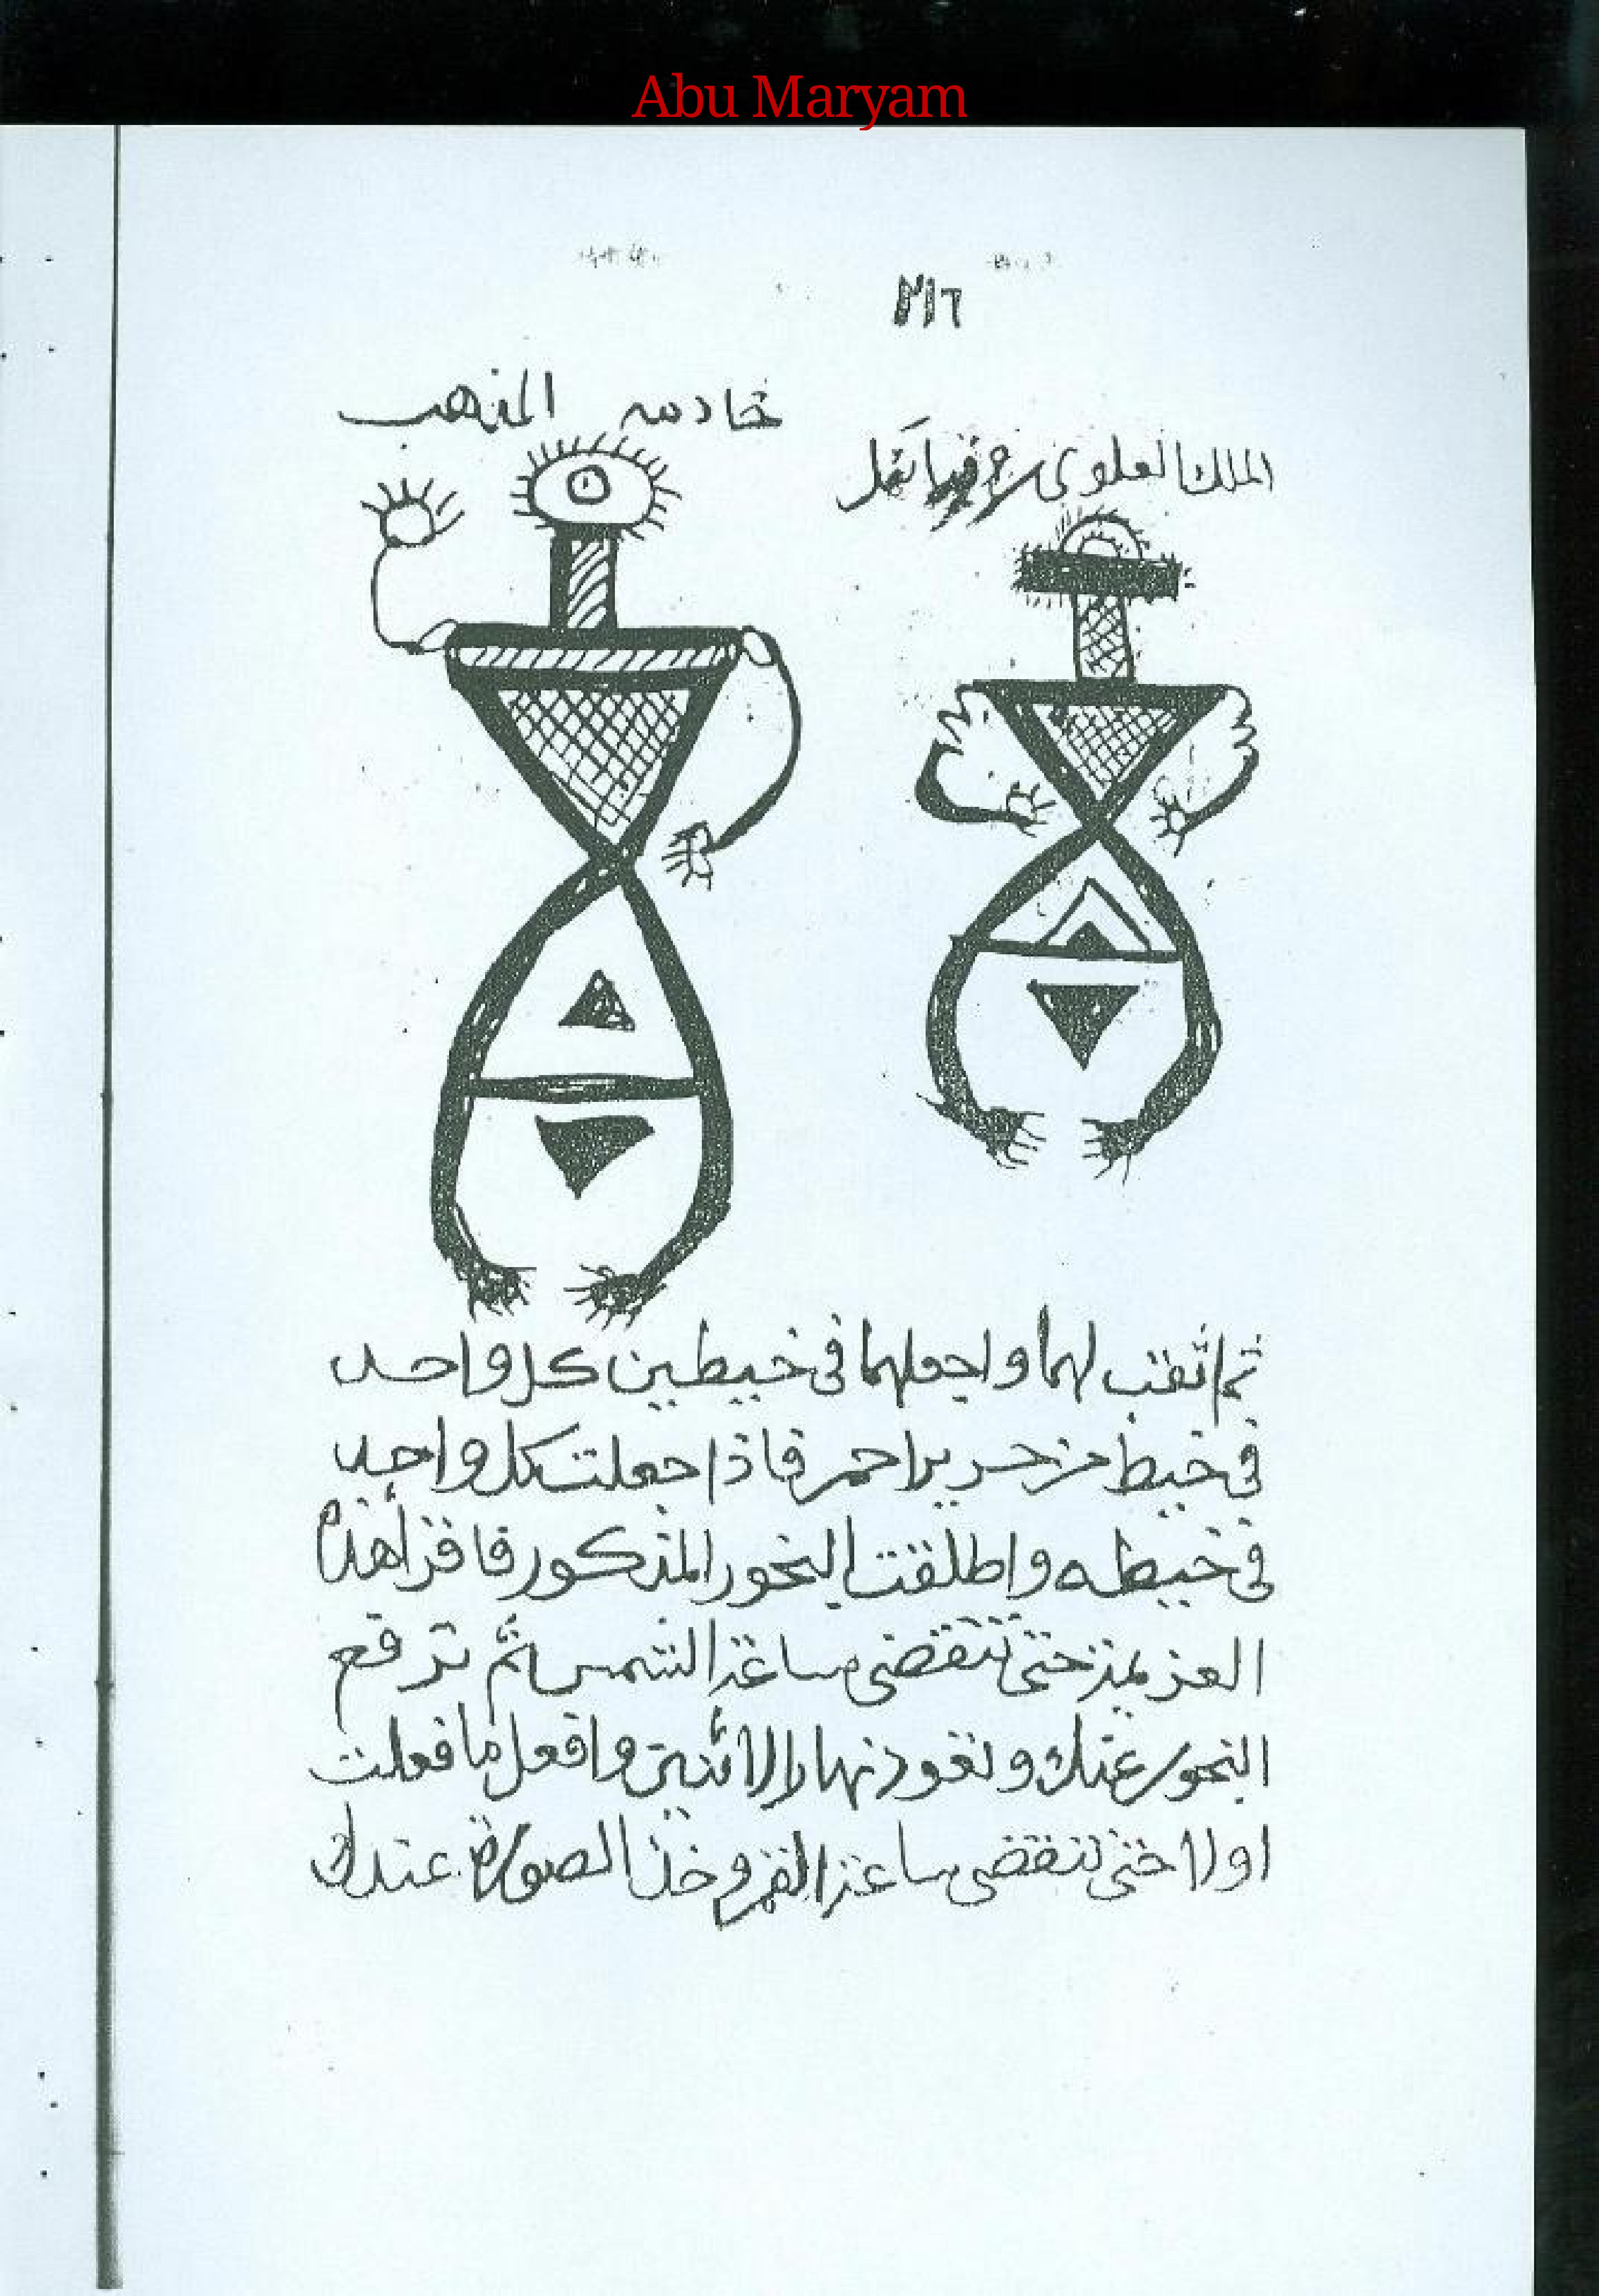 Abu Maryam
٢١٦
خادمه المذهب
الملك العلوى
ثم اثقب لهما واجعلهما فى خيطين كل واحد
فى خيط من حرير احمر فاذا جعلت كل واحد
فى خيطه واطلقت البخور المذكور فاقرأ هذه
العزيمة حتى تنقضى ساعة الشمس ثم ترفع
البخور عنك وتعود نهار الاثنين وافعل ما فعلت
اولا حتى تنقضى ساعة القمر وخذ الصورة عندك